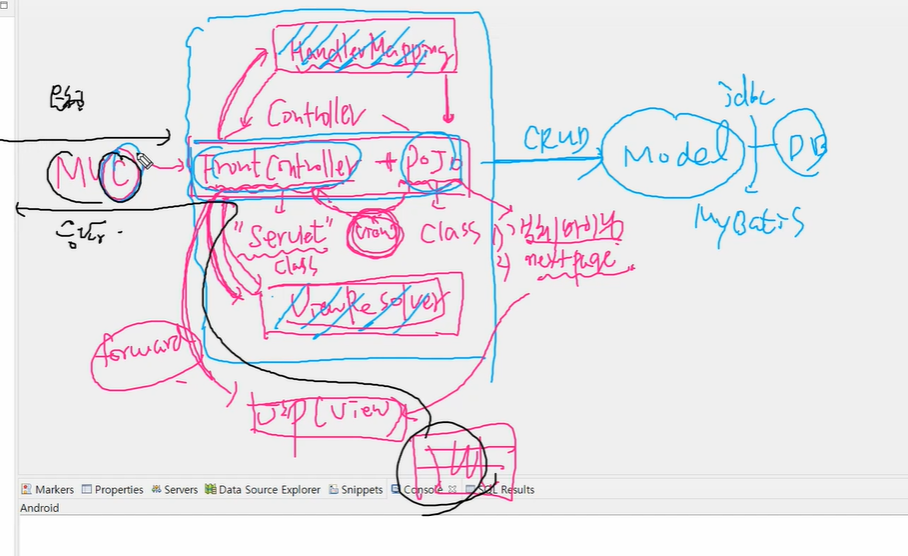 HandlerMapping
Controller
MVC
FrontController + POJO
"Servlet"
class
class
1) 객체바인딩
2) nextpage
ViewResolver
forward
JSP(View)
CRUD
Model
jdbc
DB
MyBatis
Markers Properties Servers Data Source Explorer Snippets Console SQL Results
Android